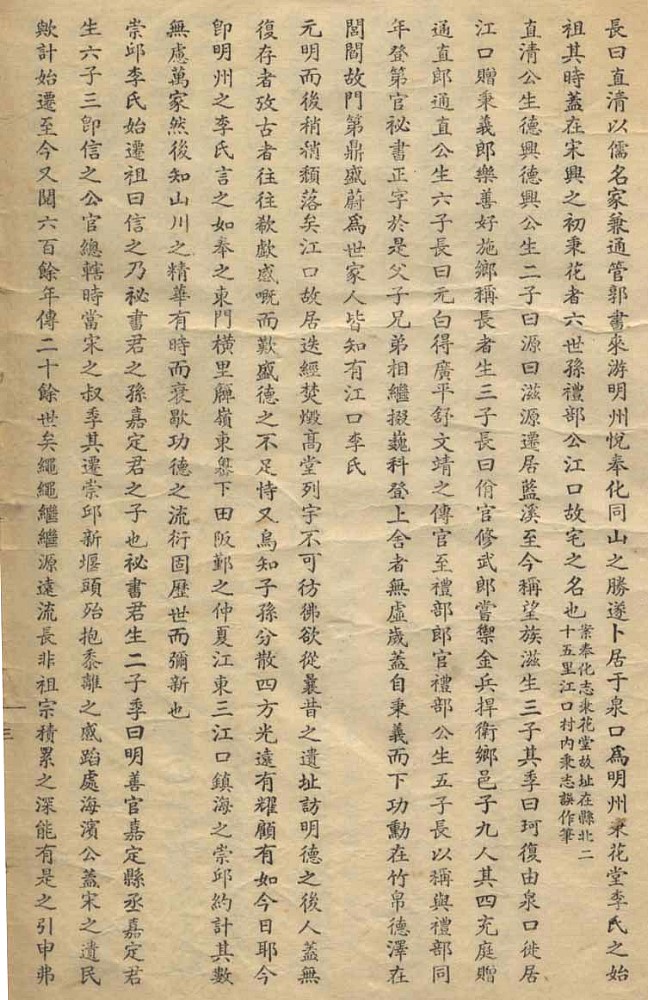 長曰直清以儒名家兼通管郭書來游明州悅奉化同山之勝遂卜居于泉口爲明州秉花堂李氏之始
祖其時蓋在宋興之初秉花者六世孫禮部公江口故宅之名也
案奉化志秉花堂故址在縣北二
十五里江口村内秉志誤作筆
直清公生德興德興公生二子曰源曰滋源遷居藍溪至今稱望族滋生三子其季曰珂復由泉口徙居
江口贈秉義郎樂善好施鄉稱長者生三子長曰佾官修武郎嘗禦金兵捍衛鄉邑子九人其四充庭贈
通直郎通直公生六子長曰元白得廣平舒文靖之傳官至禮部郎官禮部公生五子長以稱與禮部同
年登第官祕書正字於是父子兄弟相繼掇巍科登上舍者無虛歲蓋自秉義而下功勳在竹帛德澤在
閭閻故門第鼎盛蔚爲世家人皆知有江口李氏
元明而後稍稍頽落矣江口故居迭經焚燬高堂列宇不可彷彿欲從曩昔之遺址訪明德之後人蓋無
復存者攷古者往往欷歔感嘅而歎盛德之不足恃又烏知子孫分散四方光遠有耀顧有如今日耶今
卽明州之李氏言之如奉之東門橫里嶺東下田阪鄞之仲夏江東三江口鎮海之崇邱約計其數
無慮萬家然後知山川之精華有時而衰歇功德之流衍固歷世而彌新也
崇邱李氏始遷祖曰信之乃祕書君之孫嘉定君之子也祕書君生二子季曰明善官嘉定縣丞嘉定君
生六子三卽信之公官總轄時當宋之叔季其遷崇邱新堰頭殆抱黍離之感蹈處海濱公蓋宋之遺民
歟計始遷至今又閱六百餘年傳二十餘世矣繩繩繼繼源遠流長非祖宗積累之深能有是之引申弗
三